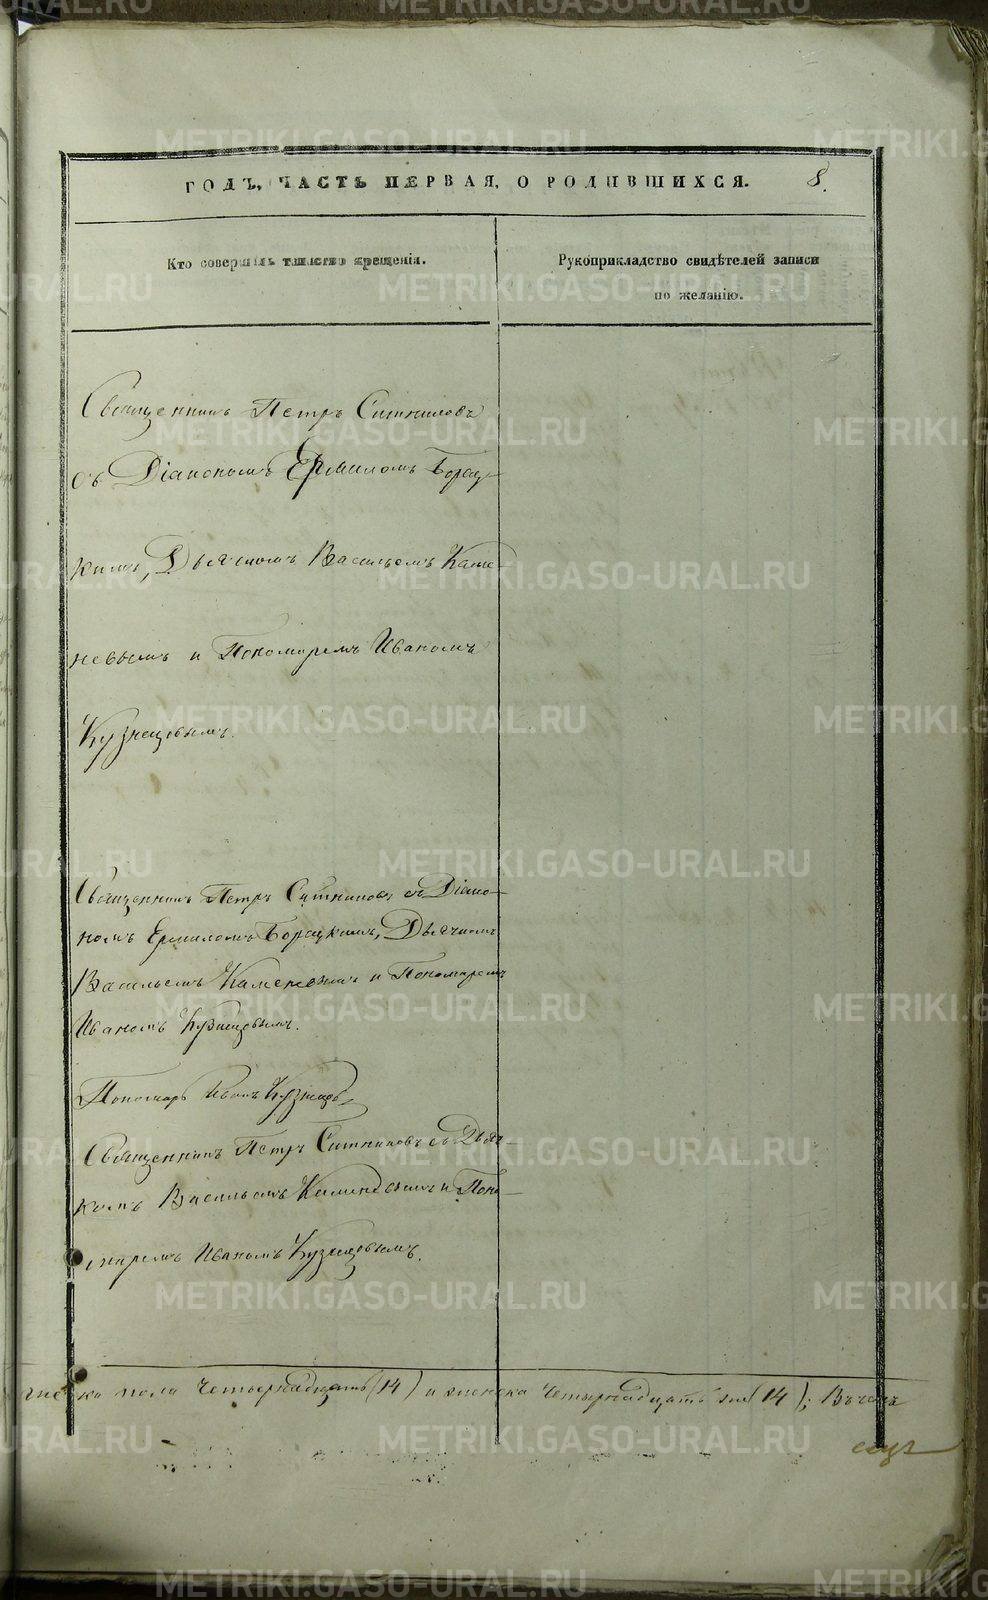 ГОДЪ, ЧАСТЬ ПЕРВАЯ, О РОДИВШИХСЯ.
8.
Кто совершалъ таинство крещенія.
Рукоприкладство свидѣтелей записи
по желанію.
Священникъ Петръ Ситниковъ
съ Діакономъ Ермиломъ Борец-
кимъ, Дьячкомъ Васильемъ Каме-
невымъ и Пономаремъ Иваномъ
Кузнецовымъ.
Священникъ Петръ Ситниковъ съ Діако-
номъ Ермиломъ Борецкимъ, Дьячкомъ
Васильемъ Каменевымъ и Пономаремъ
Иваномъ Кузнецовымъ.
Пономарь Иванъ Кузнецовъ
Священникъ Петръ Ситниковъ съ Дьяч-
комъ Васильемъ Каменевымъ и Поно-
маремъ Иваномъ Кузнецовымъ.
пола четырнадцать (14) и женска четырнадцать же (14);
METRIKI.GASO-URAL.RU